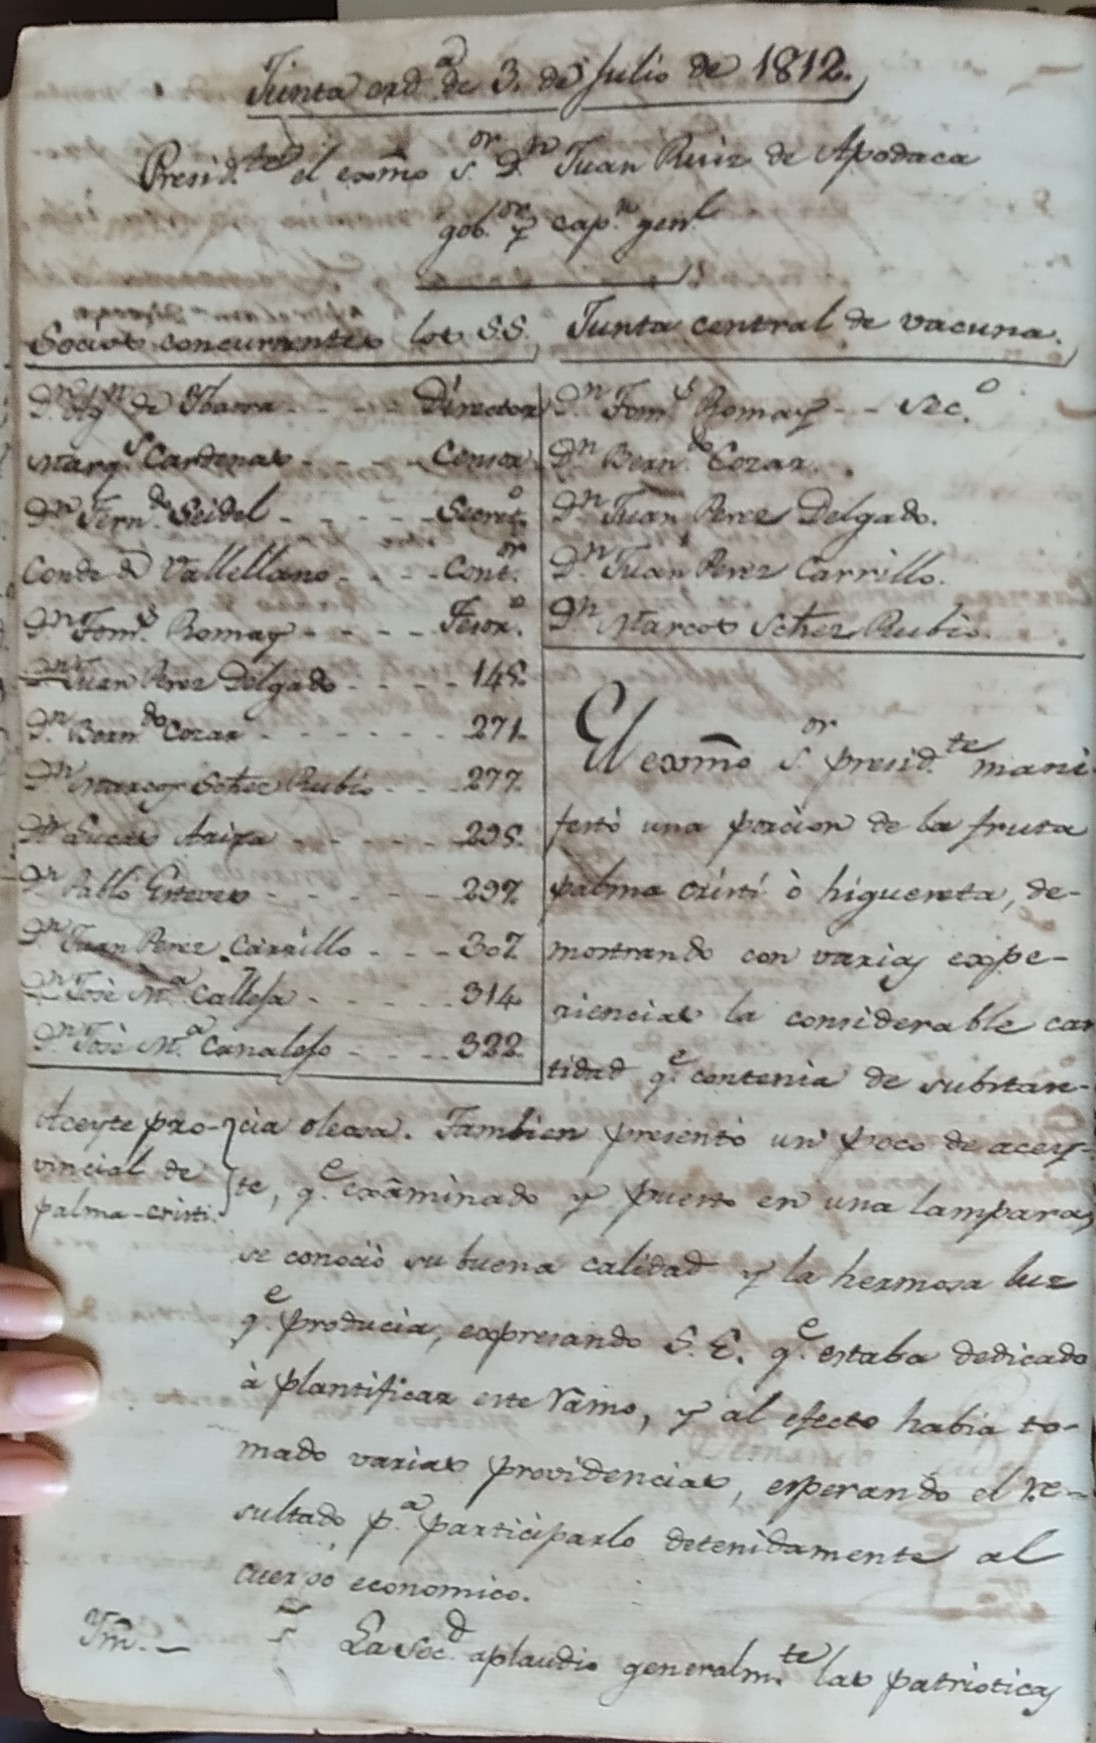 Junta ord.ª de 3. de Julio de 1812.
Presid.te el exmo S.or D.n Juan Ruiz de Apodaca
gob.or y cap.n gen.l
Socios concurrentes los S.S.
D.n Ag.n de Ybarra - - - - Director
Marq.s Cardenas - - - - - Censor
D.n Fern.do Seidel - - - - - Secret.o
Conde d Vallellano - - - - Cont.or
D.n Tom.s Romay - - - - - Tesor.o
D.n Juan Perez Delgado - - - - 145.
D.n Bern.do Cozar - - - - - - - 271.
D.n Marcos Schez Rubio - - - 277.
D.n Lucas Ariza - - - - - - 295.
D.n Pablo Estevez - - - - - - 297.
D.n Juan Perez Carrillo - - - 307
D.n Josè M.ª Calleja - - - - - 314
D.n Josè M.ª Canalejo - - - - 322.
Junta central de vacuna.
D.n Tom.s Romay - - Sec.o
D.n Bern.do Cozar.
D.n Juan Perez Delgado.
D.n Juan Perez Carrillo.
D.n Marcos Schez Rubio.
El exmo S.or presid.te mani-
festò una porcion de la fruta
palma cristi ò higuereta, de-
mostrando con varias expe-
riencias la considerable can
tidad q.e contenia de substan-
Aceyte pro-
vincial de
palma-cristi.
cia oleosa. Tambien presentò un poco de acey-
te, q.e exâminado y puesto en una lampara,
se conociò su buena calidad y la hermosa luz
q.e producia, expresando S. E. q.e estaba dedicado
à plantificar este ramo, y al efecto habia to-
mado varias providencias, esperando el re-
sultado p.ª participarlo detenidamente al
cuerpo economico.
Ym. -
La Soc.d aplaudio generalm.te las patrioticas